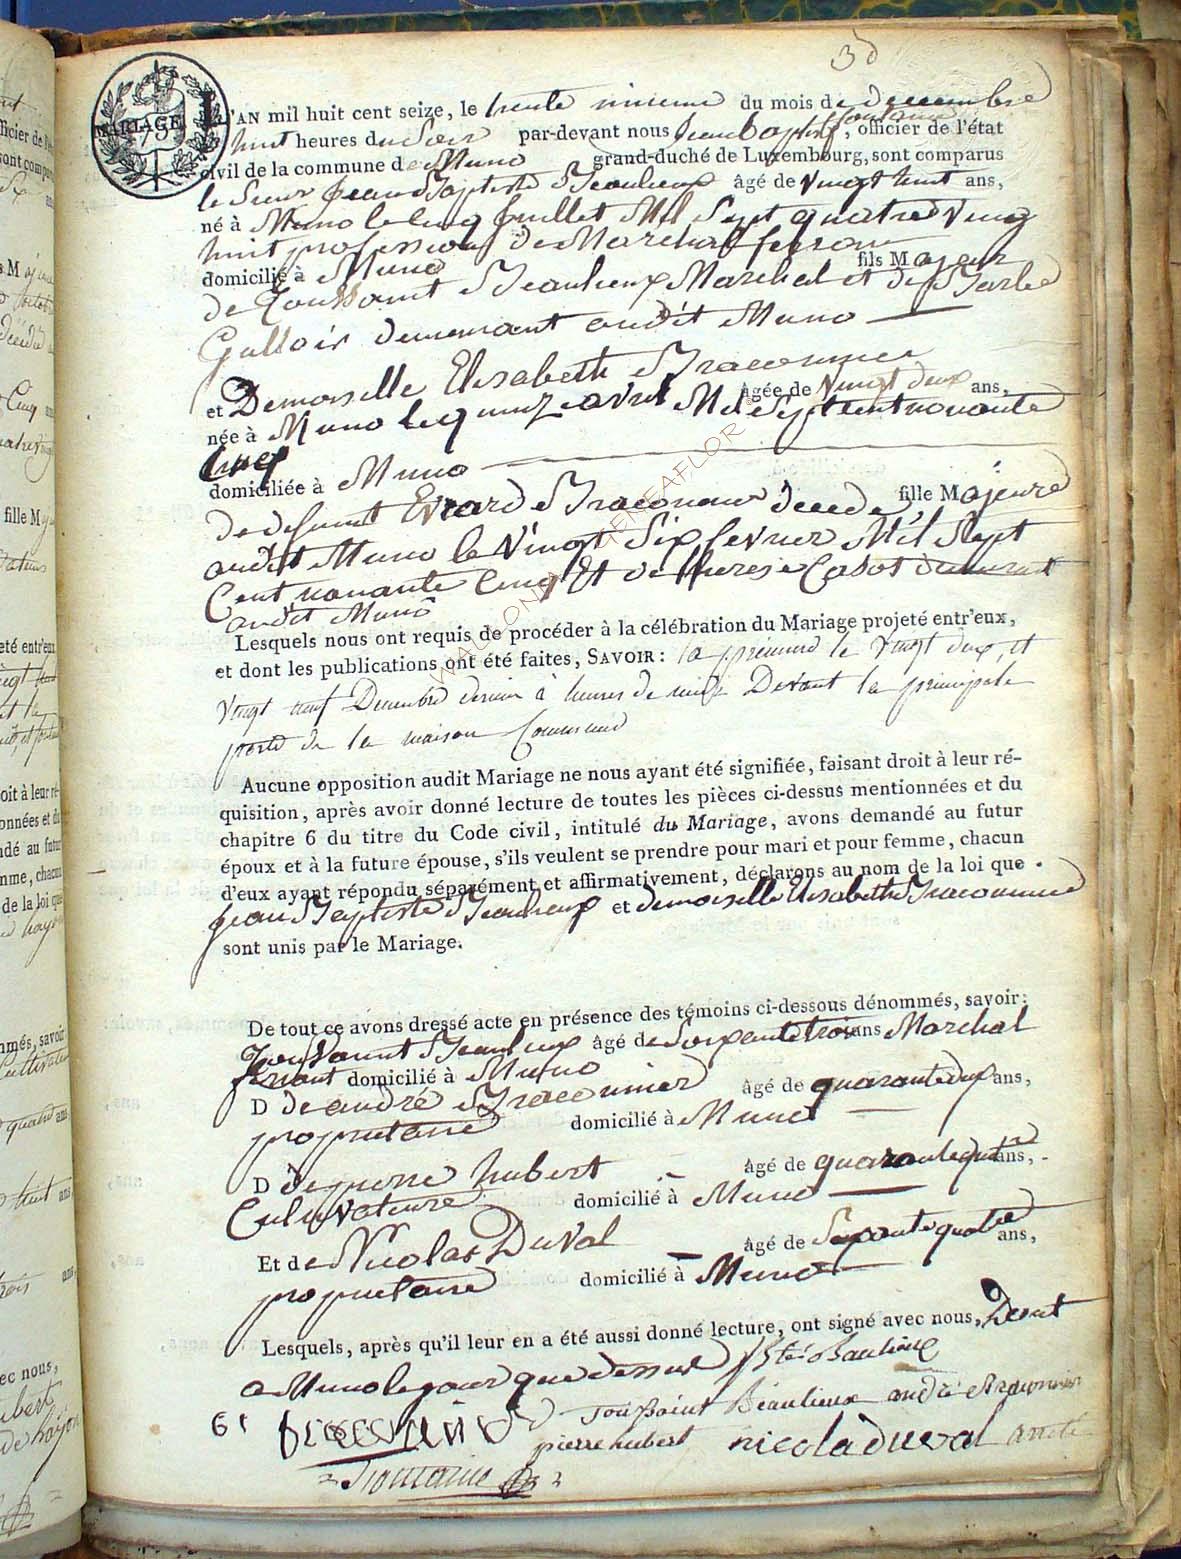 30
MARIAGE
L'AN mil huit cent seize, le trente unieme du mois de decembre
huit heures du Soir par-devant nous Jean Baptiste fontaine, officier de l'état
civil de la commune de Muno grand-duché de Luxembourg, sont comparus
le Sieur Jean Baptiste Beaulieux âgé de vingt huit ans,
né à Muno le cinq Juillet Mil Sept quatre Vingt
huit profession de Marechal ferrant
domicilié à Muno fils Majeur
de Toussaint Beaulieux Marchal et de Barbe
Gallois demeurant audit Muno
et Demoiselle Elisabeth Braconnier
âgée de Vingt deux ans,
née à Muno le quinze avril Mil Sept cent nonante
Cinq
domiciliée à Muno
fille Majeure
de defunt Evrard Braconnier décédé
audit Muno le Vingt Six fevrier Mil Sept
Cent nonante Cinq Et de therese Casot demeurant
audit Muno
Lesquels nous ont requis de procéder à la célébration du Mariage projeté entr'eux,
et dont les publications ont été faites, SAVOIR: la premiere le Vingt deux, et
Vingt neuf Decembre dernier à heures de midi Devant la principale
porte de la maison Commune
Aucune opposition audit Mariage ne nous ayant été signifiée, faisant droit à leur ré-
quisition, après avoir donné lecture de toutes les pièces ci-dessus mentionnées et du
chapitre 6 du titre du Code civil, intitulé du Mariage, avons demandé au futur
époux et à la future épouse, s'ils veulent se prendre pour mari et pour femme, chacun
d'eux ayant répondu séparément et affirmativement, déclarons au nom de la loi que
jean Baptiste Beaulieux et demoiselle Elisabeth Braconnier
sont unis par le Mariage.
De tout ce avons dressé acte en présence des témoins ci-dessous dénommés, savoir:
Toussaint Beaulieux âgé de Soixante trois ans Marchal
ferrant domicilié à Muno
D de andré Braconnier âgé de quarante deux ans,
proprietaire domicilié à Muno
D de pierre hubert âgé de quarante ans,
Cultivateur domicilié à Muno
Et de Nicolas Duval âgé de Septante quatre ans,
proprietaire domicilié à Muno
Lesquels, après qu'il leur en a été aussi donné lecture, ont signé avec nous,
a Muno le jour que dessus J Bte Baulieux
Toussaint Beaulieux andré Braconnier
pierre hubert nicola duval
Fontaine
WALLONIA GENEAFLOR